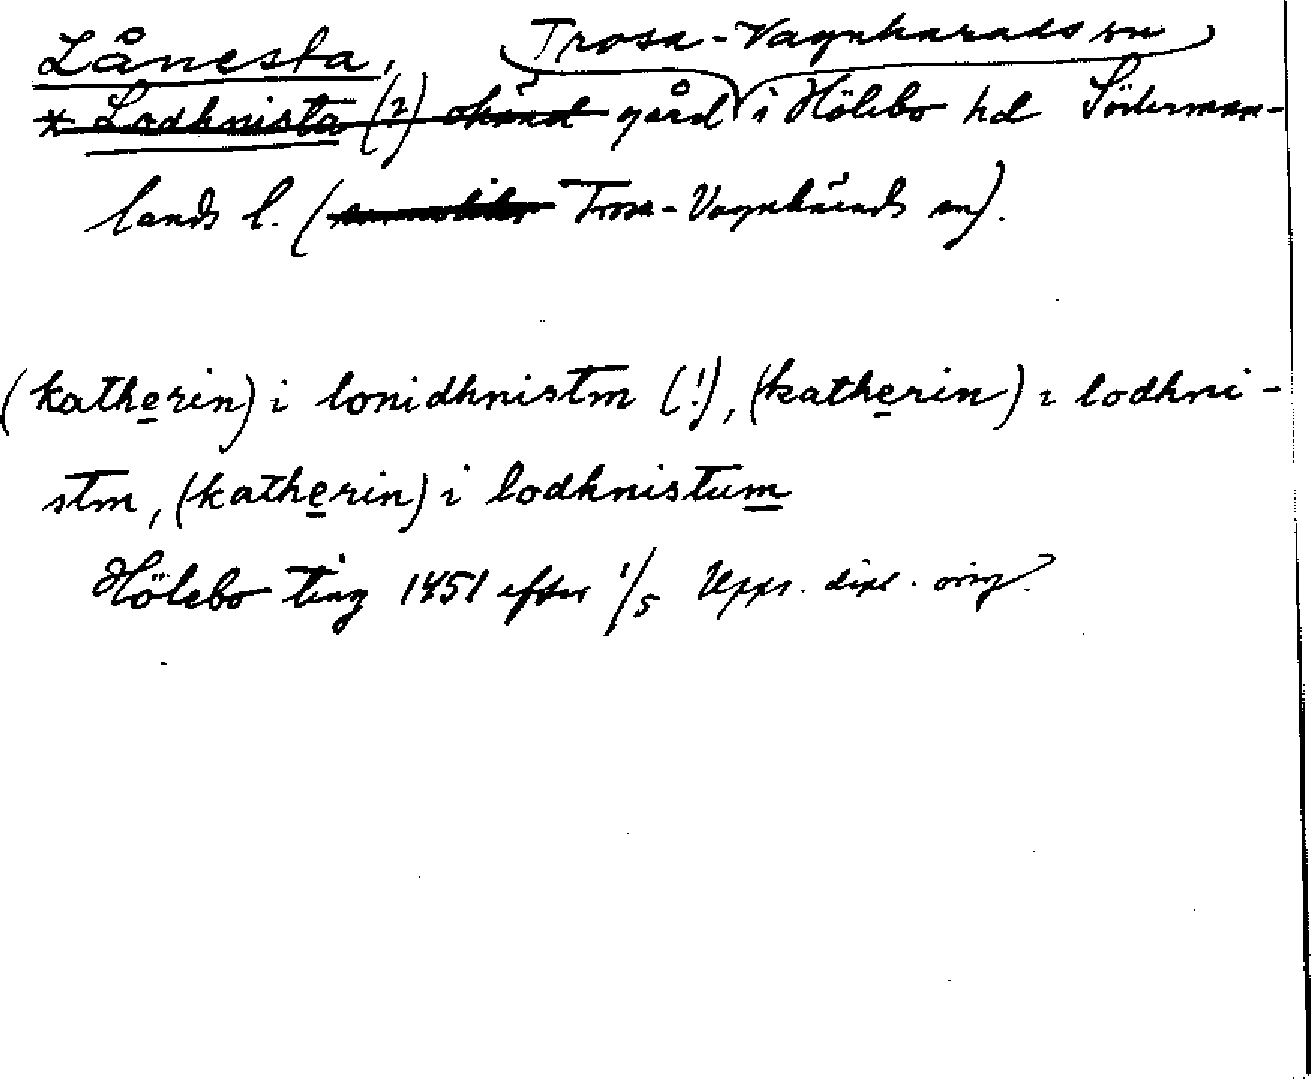 Lånesta, Trosa-Vagnharads sn
* Lodhnista (?) okänd gård i Hölebo hd Söderman-
lands l. ( Trosa-Vagnhärads sn).
(katherin) i lonidhnistm (!), (katherin) i lodhni-
stm, (katherin) i lodhnistum
Hölebo ting 1451 efter 1/5 Upps. dipl. orig.